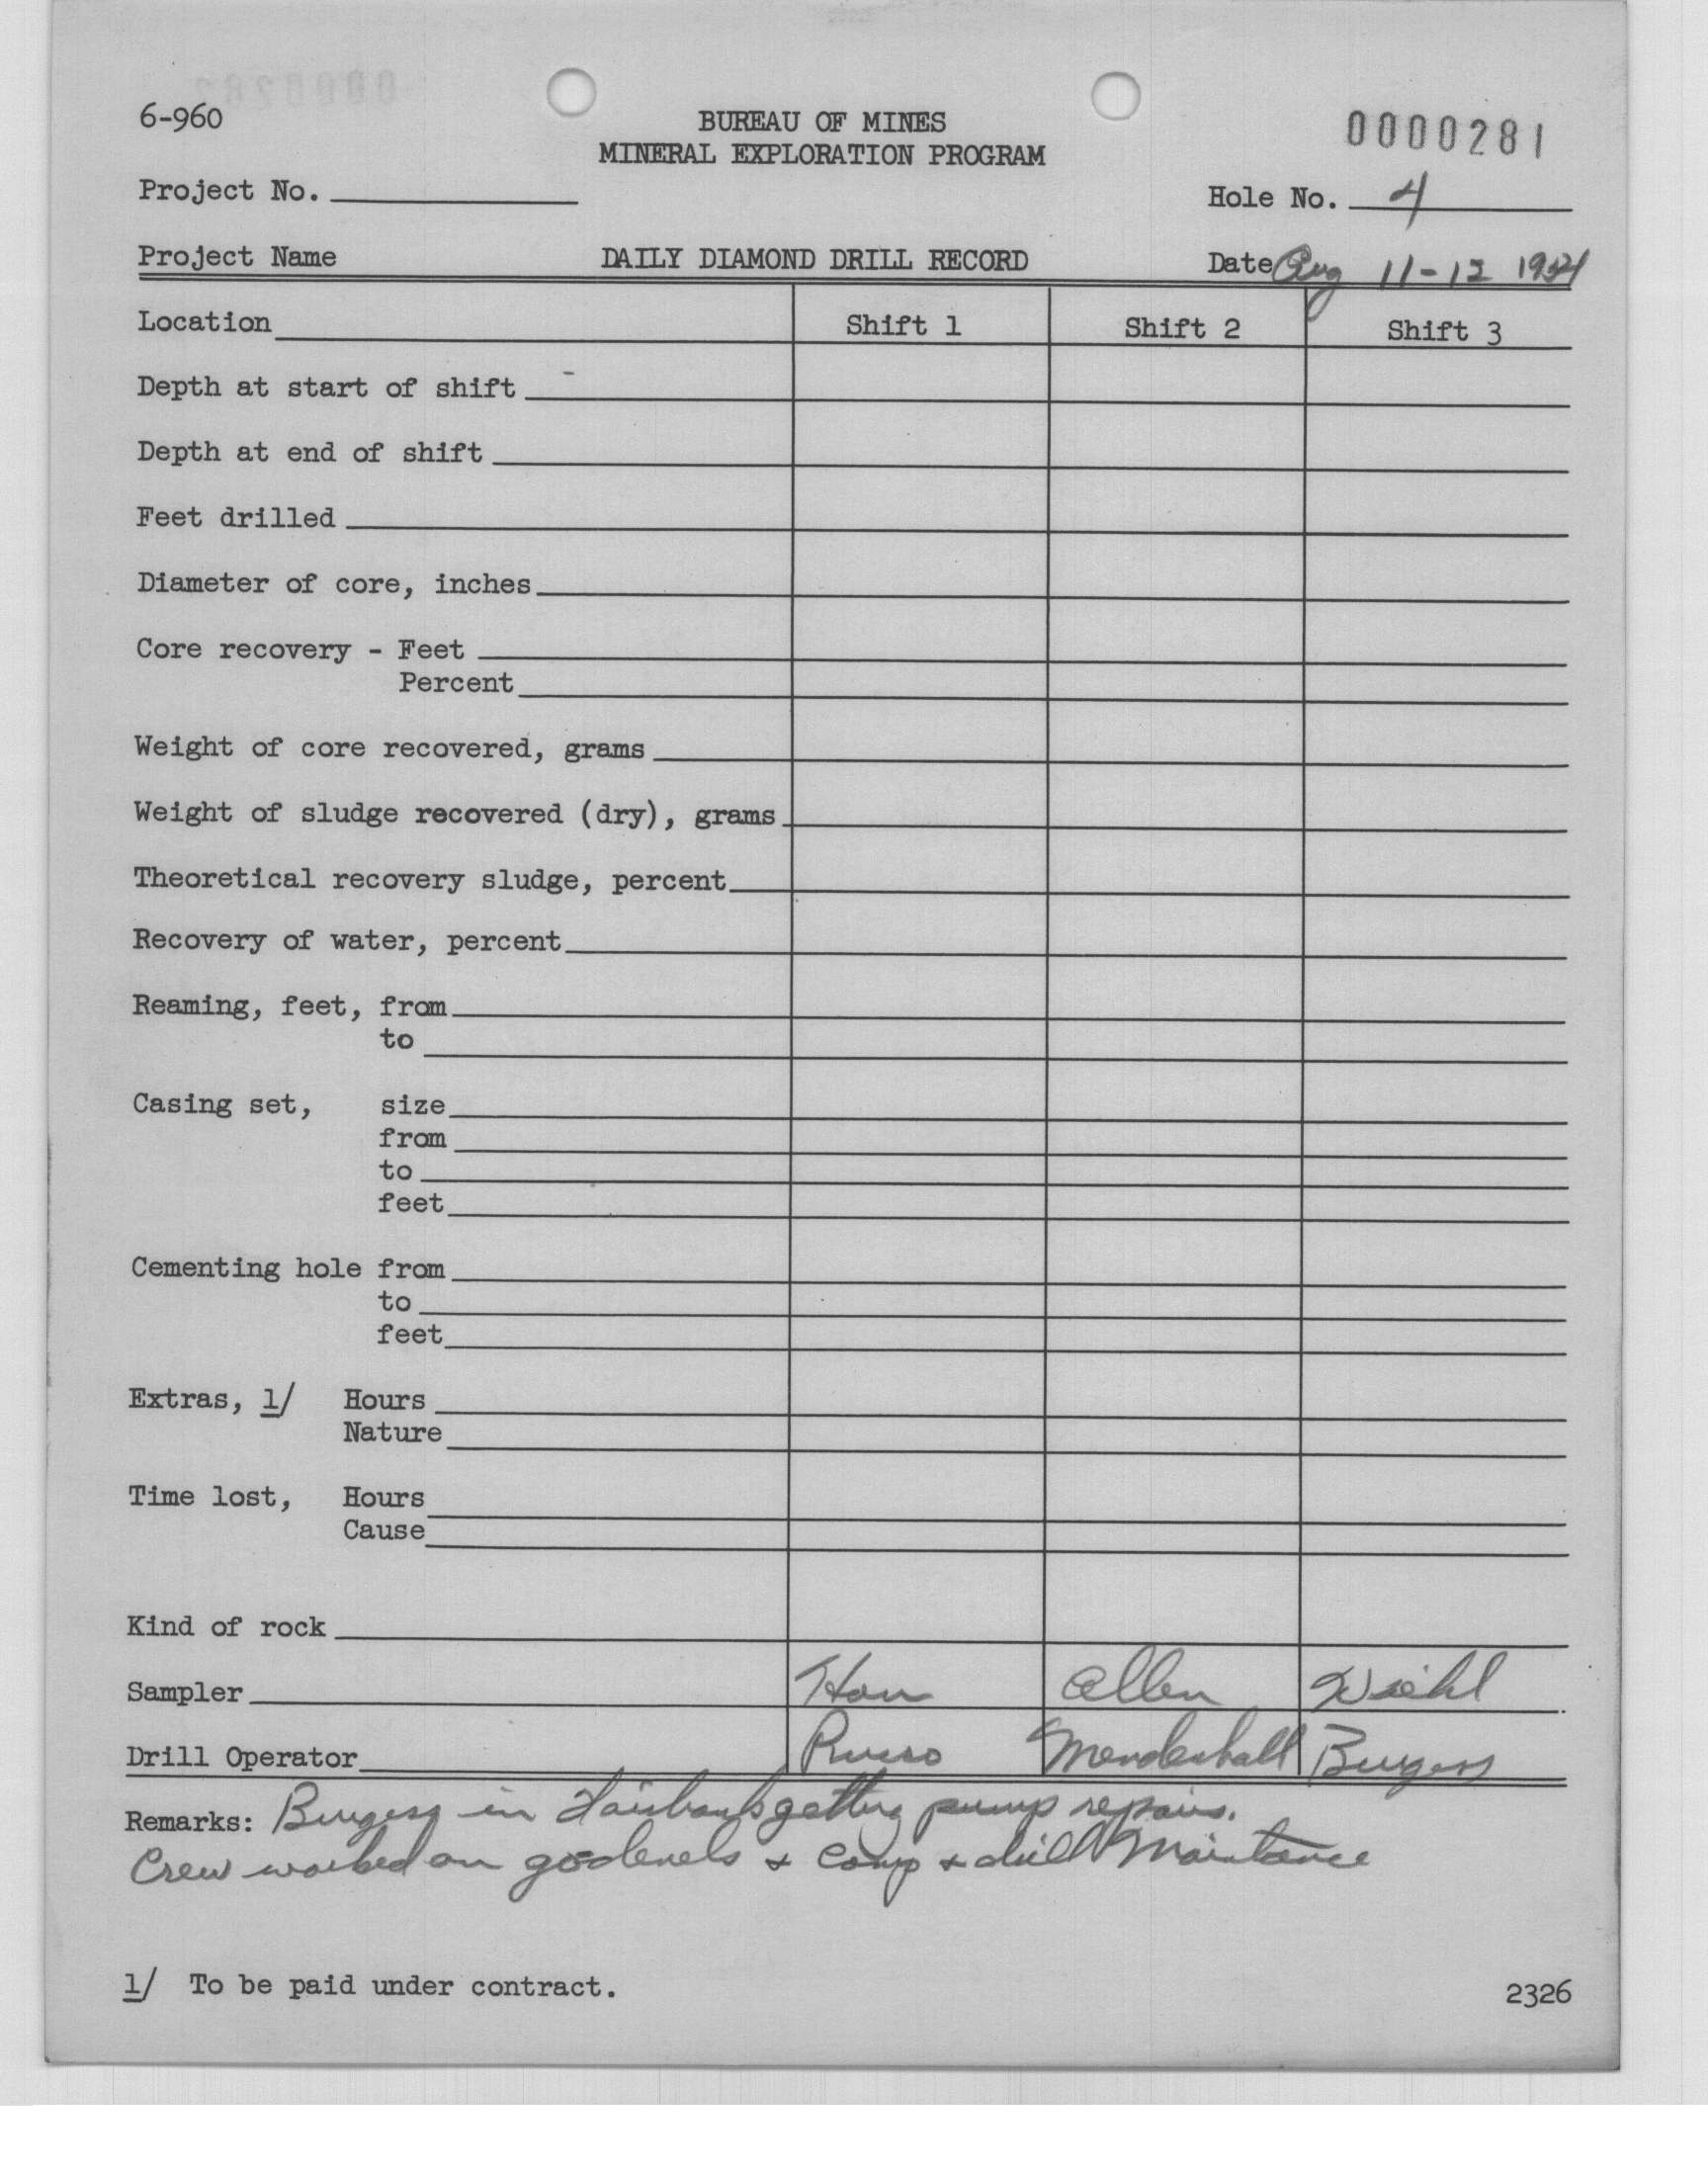 6-960
BUREAU OF MINES
MINERAL EXPLORATION PROGRAM
0000281
Project No.
Hole No. 4
Project Name DAILY DIAMOND DRILL RECORD Date Aug 11-12 1954
Location Shift 1 Shift 2 Shift 3
Depth at start of shift
Depth at end of shift
Feet drilled
Diameter of core, inches
Core recovery - Feet
Percent
Weight of core recovered, grams
Weight of sludge recovered (dry), grams
Theoretical recovery sludge, percent
Recovery of water, percent
Reaming, feet, from
to
Casing set, size
from
to
feet
Cementing hole from
to
feet
Extras, 1/ Hours
Nature
Time lost, Hours
Cause
Kind of rock
Sampler Allen
Drill Operator Russo Mendenhall Burgess
Remarks: Burgess in Fairbanks getting pump repairs.
Crew worked on & Camp & drill Maintance
1/ To be paid under contract.
2326